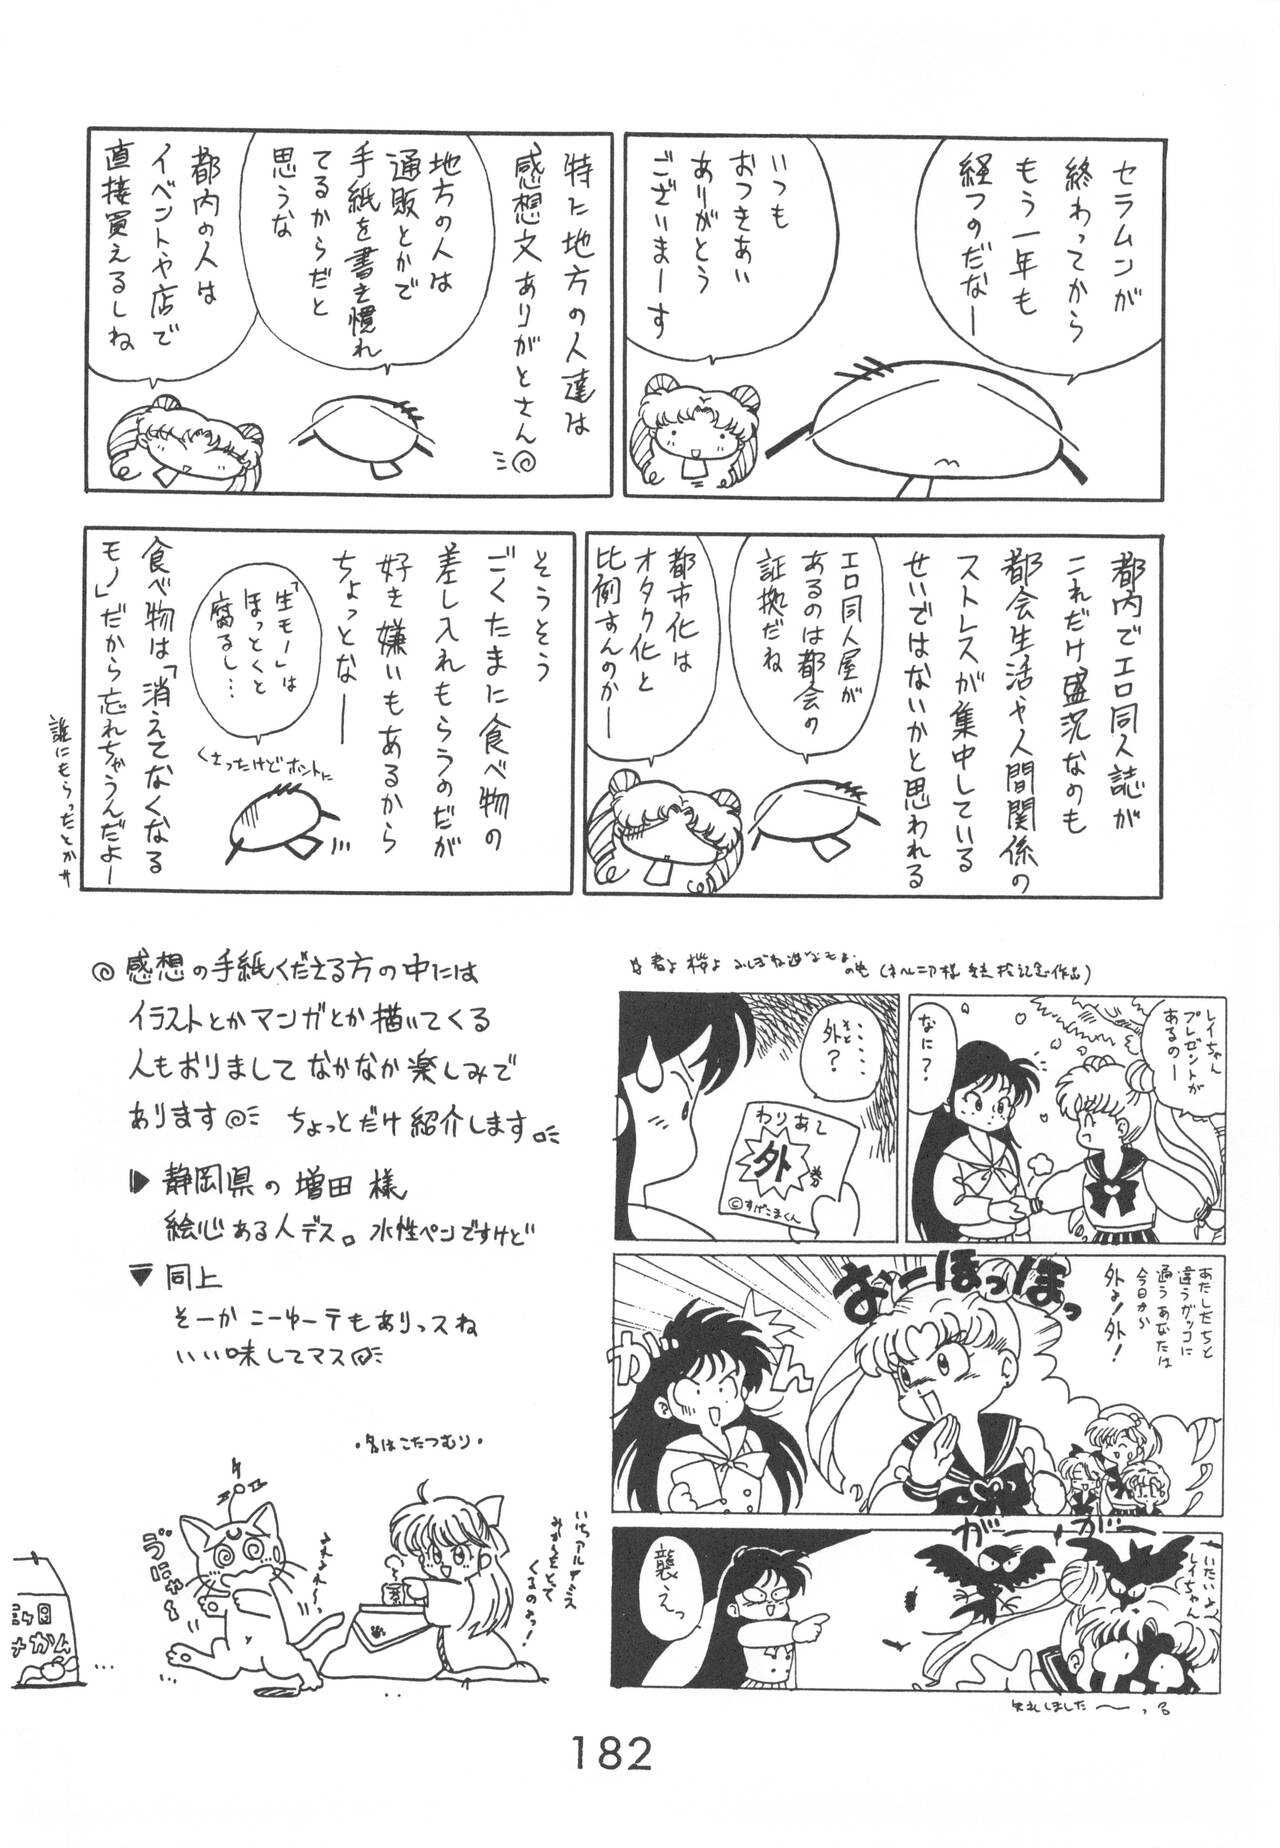 セラムンが
終わってから
もう一年も
経つのだなー
いつも
おつきあい
ありがとう
ございまーす
特に地方の人達は
感想文ありがとさん
地方の人は
通販とかで
手紙を書き慣れ
てるからだと
思うな
都内の人は
イベントや店で
直接買えるしね
都内でエロ同人誌が
これだけ盛況なのも
都会生活や人間関係の
ストレスが集中している
せいではないかと思われる
エロ同人屋が
あるのは都会の
証拠だね
都市化は
オタク化と
比例すんのかー
そうそう
ごくたまに食べ物の
差し入れもらうのだが
好き嫌いもあるから
ちょっとなー
「生モノ」は
ほっとくと
腐るし…
くさったけどホントに
食べ物は「消えてなくなる
モノ」だから忘れちゃうんだよー
誰にもらったとか
◎感想の手紙くださる方の中には
イラストとかマンガとか描いてくる
人もおりましてなかなか楽しみで
あります
ちょっとだけ紹介します
▶静岡県の増田様
絵心ある人デス。水性ペンですけど
▼同上
そーかこーゆーテもありっスね
いい味してマス
レイちゃん
プレゼントが
あるのー
なに?
そ・・・・
外と?
わりあて
外
券
©すげこまくん
おーほっほっほっ
あたしたちと
違うガッコに
通うあなたは
今日から
外よ!外!
がーん
襲えっ
ガー
ガー
いたいよ
レイちゃん
失礼しました〜っ
・名はこたつむり・
みかん
茶
182